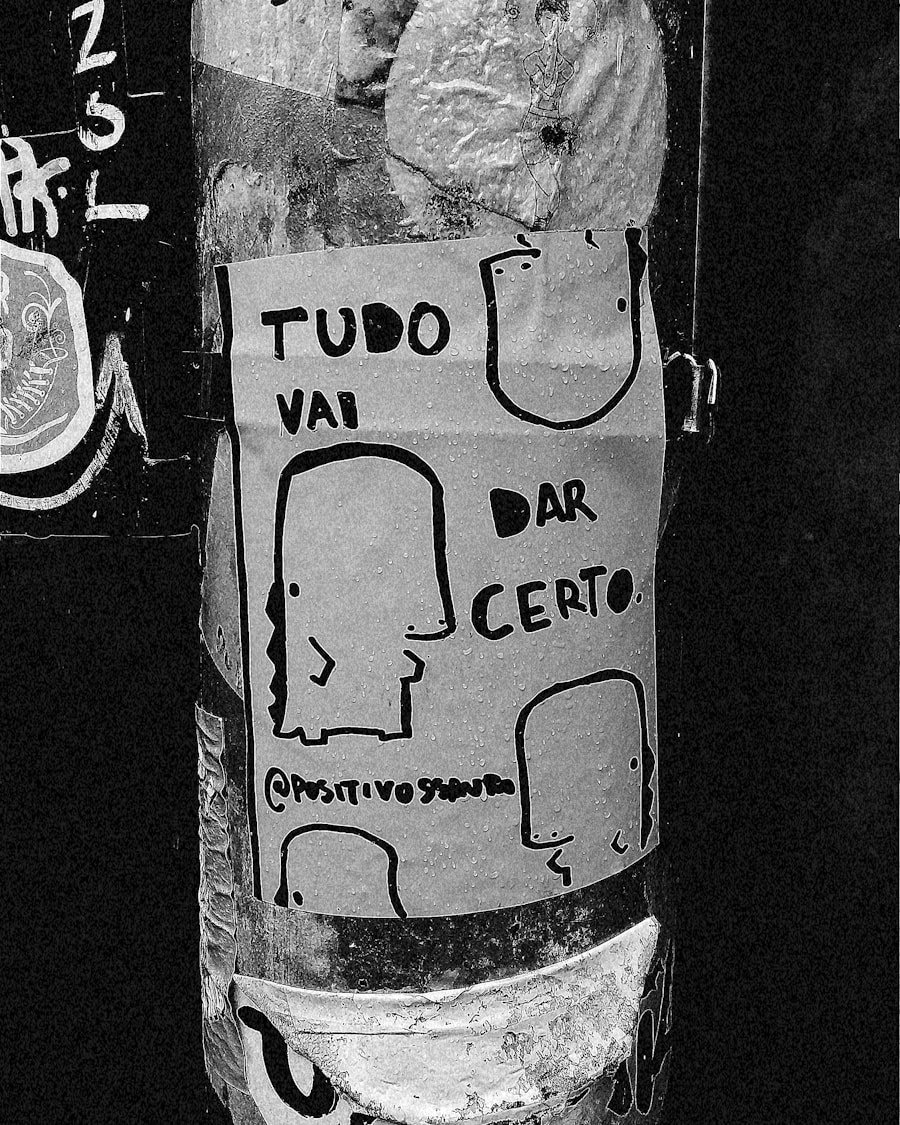 Z
S
L
TUDO
VAI
DAR
CERTO.